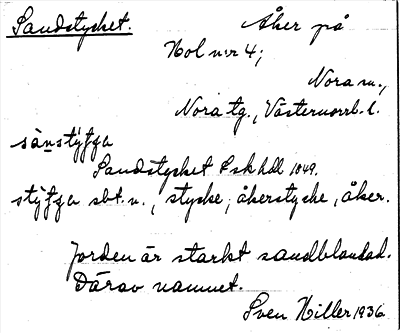 Sandstycket. Åker på
Hol n:r 4;
Nora sn.,
Nora tg., Västernorrl. l.
sànstýʃga
Sandstycket Lskhdl 1049.
stýʃga sbt. n., stycke; åkerstycke, åker.
Jorden är starkt sandblandad.
Därav namnet.
Sven Hiller 1936.